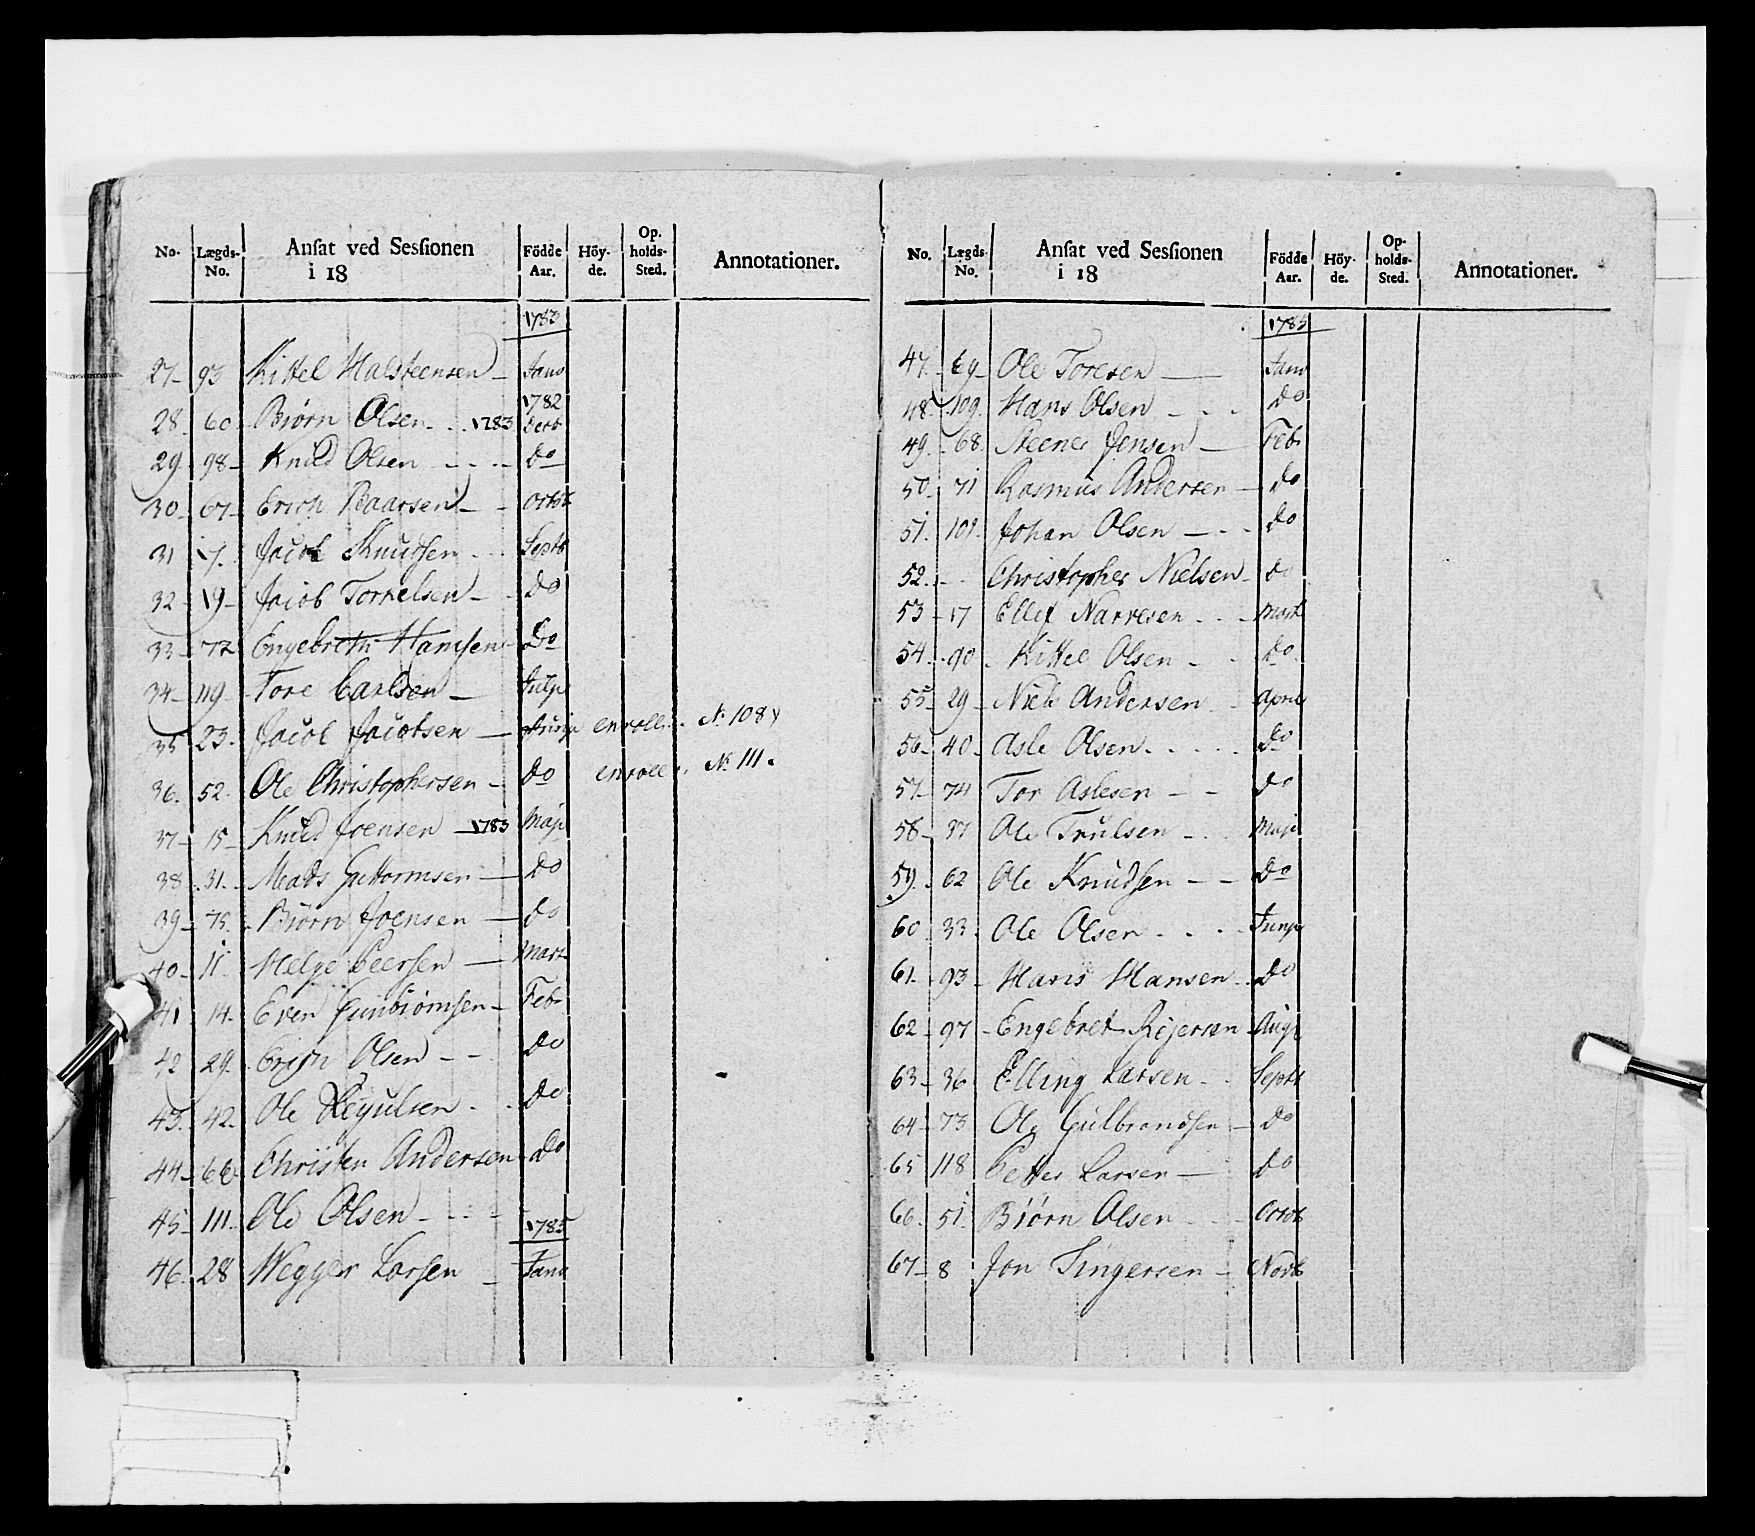 No. Lægds-No. Ansat ved Sessionen i 18 Födde Aar. Höy-de. Op-holds-Sted. Annotationer.
1783
27 93 Kittel Halsteensen Janv
1782
28 60 Biørn Olsen 1783 Decb
29 98 Knud Olsen Do
30 67 Erich Baarsen Octb
31 17 Jacob Knudsen Septb
32 19 Jacob Torkelsen Do
33 72 Engebreth Hansen Do
34 119 Tore Carlsen Julj
35 23 Jacob Jacobsen enroll. No 108
36 52 Ole Christophersen Do enroll. No 111.
37 15 Knud Joensen 1783 Maj
38 31 Mads Guttormsen Do
39 75 Biørn Joensen Do
40 11 Helge Peersen Mart
41 14 Even Gunbiørnsen Feb
42 29 Olsen Do
43 42 Ole Do
44 66 Christen Andersen Do
45 111 Ole Olsen
1785
46 28 Wegger Larsen Janv
No. Lægds-No. Ansat ved Sessionen i 18 Födde Aar. Höy-de. Op-holds-Sted. Annotationer.
1785
47 69 Ole Toresen Janv
48 109 Hans Olsen Do
49 68 Steener Jensen Feb
50 71 Rasmus Andersen Do
51 101 Johan Olsen Do
52 - - Christopher Nielsen Do
53 17 Ellef Narvesen Mart
54 90 Kittel Olsen Do
55 29 Niels Andersen April
56 40 Asle Olsen Do
57 74 Tor Aslesen Do
58 37 Ole Trulsen Maji
59 62 Ole Knudsen Do
60 33 Ole Olsen Junj
61 93 Hans Hansen Do
62 97 Engebret Rejersen Aug
63 36 Elling Larsen Septb
64 73 Ole Gulbrandsen Do
65 118 Petter Larsen Do
66 51 Biørn Olsen Octob
67 8 Jon Tingersen Novb